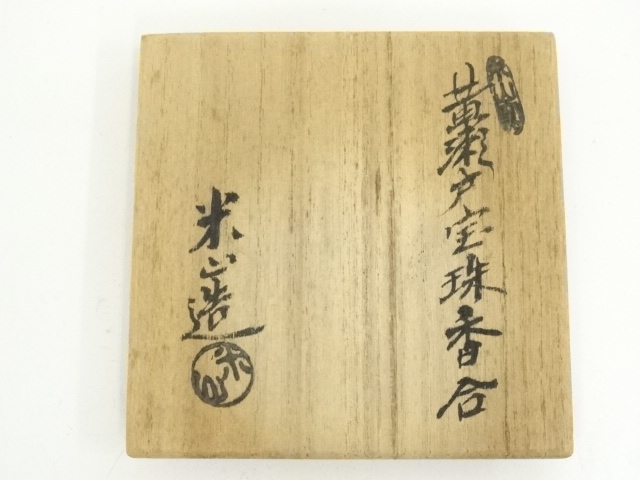 黄瀬戸宝珠香合
米山造